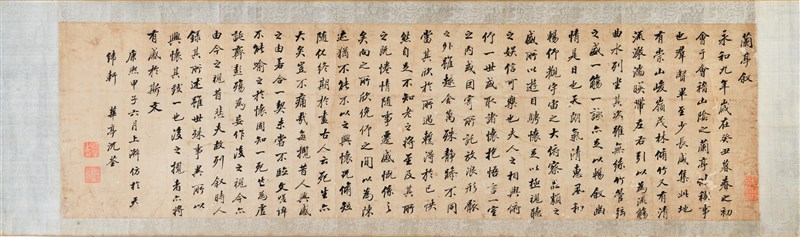 蘭亭叙
永和九年歲在癸丑暮春之初
會于會稽山陰之蘭亭修稧事
也羣賢畢至少長咸集此地
有崇山峻嶺茂林脩竹又有清
流激湍暎帶左右引以為流觴
曲水列坐其次雖無絲竹管弦
之盛一觴一詠亦足以暢叙幽
情是日也天朗氣清惠風和
暢仰觀宇宙之大俯察品類之
盛所以遊目騁懷足以極視聽
之娛信可樂也夫人之相與俯
仰一世或取諸懷抱悟言一室
之内或因寄所託放浪形骸
之外雖趣舍萬殊静躁不同
當其欣於所遇蹔得於己怏
然自足不知老之將至及其所
之既惓情隨事遷感慨係之
矣向之所欣俛仰之間以為陳
迹猶不能不以之興懷况脩短
隨化終期於盡古人云死生亦
大矣豈不痛哉每攬昔人興感
之由若合一契未嘗不臨文嗟悼
不能喻之於懷固知一死生為虛
誕齊彭殤為妄作後之視今亦
由今之視昔悲夫故列叙時人
録其所述雖世殊事異所以
興懷其致一也後之攬者亦將
有感於斯文
康熙甲子六月上澣仿於天
緯軒 華亭沈荃